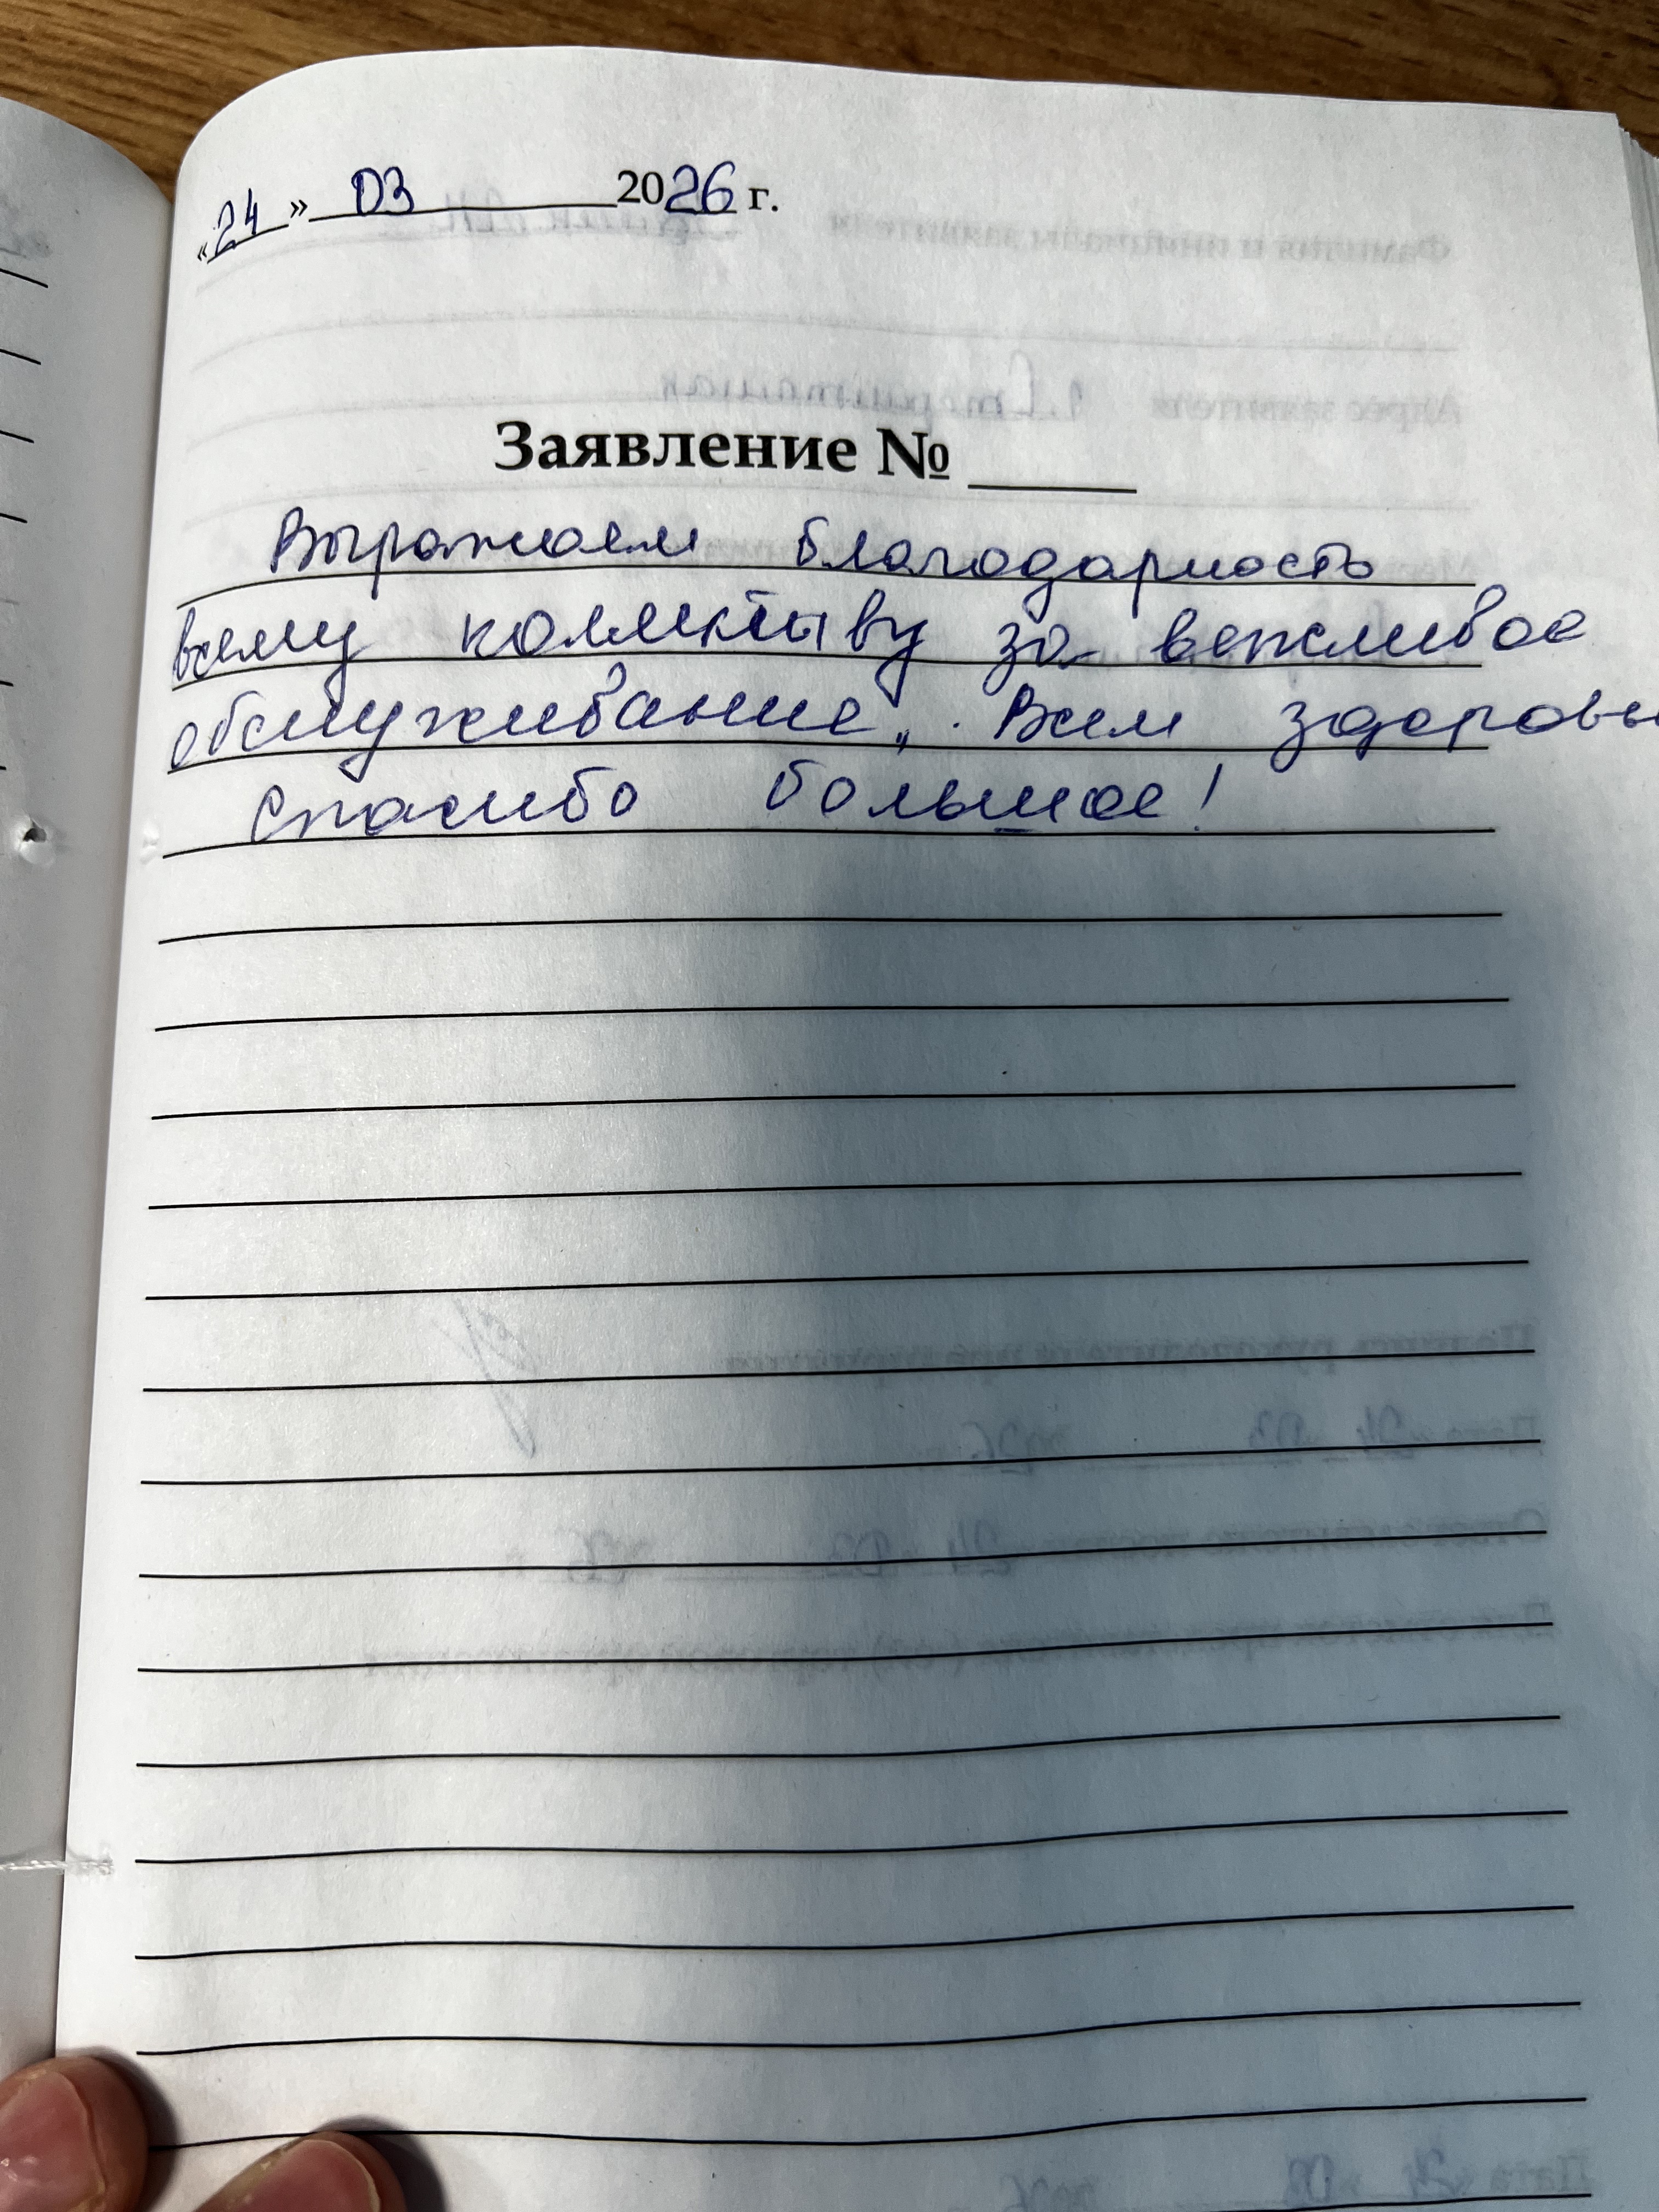 «24» 03 2026 г.
Заявление №
Выражаем благодарность
всему коллективу за вежливое
обслуживание. Всем здоровь
Спасибо большое!